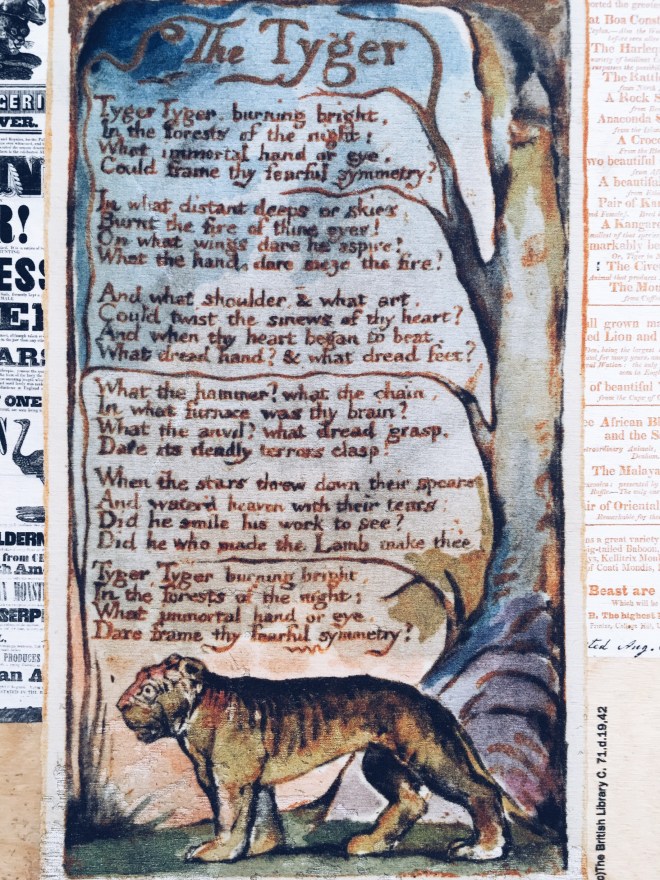 The Tyger
Tyger Tyger. burning bright,
In the forests of the night;
What immortal hand or eye.
Could frame thy fearful symmetry?
In what distant deeps or skies.
Burnt the fire of thine eyes!
On what wings dare he aspire!
What the hand, dare sieze the fire?
And what shoulder, & what art,
Could twist the sinews of thy heart?
And when thy heart began to beat,
What dread hand? & what dread feet?
What the hammer? what the chain,
In what furnace was thy brain?
What the anvil? what dread grasp.
Dare its deadly terrors clasp!
When the stars threw down their spears
And water'd heaven with their tears:
Did he smile his work to see?
Did he who made the Lamb make thee
Tyger, Tyger burning bright
In the forests of the night;
What immortal hand or eye
Dare frame thy fearful symmetry?
GERI
VER.
R!
ESS
ARS
ONE
LDERN
from
th Am
MONST
SERP
PRODUCES
an A
at Boa Const
The Harleq
The Rattl
A Rock S
Anaconda S
A Croco
wo beautiful
A beautifu
Pair of Kan
A Kangaro
markably be
The Cive
The Mon
all grown m
ed Lion and
of beautiful
African Bi
and the S
The Malaya
ir of Oriental
as a great variety
ig-tailed Baboon,
Beast are
Which will be
B. The highest
ted Aug.
The British Library C. 71.d.19,42